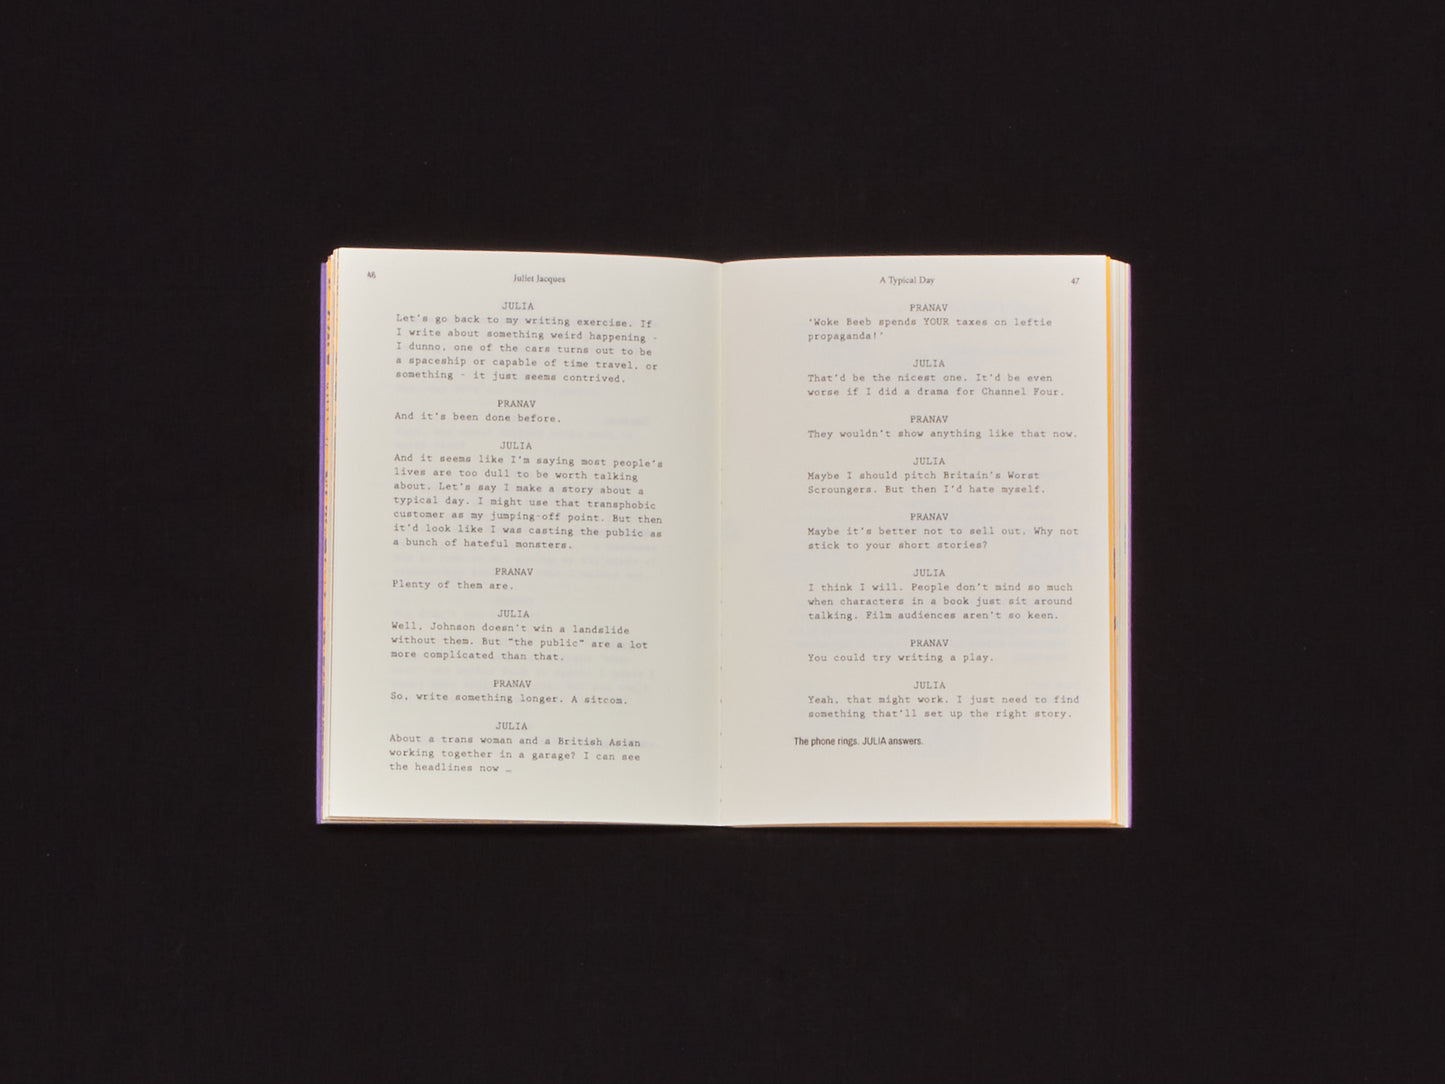 46
Juliet Jacques
JULIA
Let's go back to my writing exercise. If
I write about something weird happening -
I dunno, one of the cars turns out to be
a spaceship or capable of time travel, or
something - it just seems contrived.
PRANAV
And it's been done before.
JULIA
And it seems like I'm saying most people's
lives are too dull to be worth talking
about. Let's say I make a story about a
typical day. I might use that transphobic
customer as my jumping-off point. But then
it'd look like I was casting the public as
a bunch of hateful monsters.
PRANAV
Plenty of them are.
JULIA
Well, Johnson doesn't win a landslide
without them. But "the public" are a lot
more complicated than that.
PRANAV
So, write something longer. A sitcom.
JULIA
About a trans woman and a British Asian
working together in a garage? I can see
the headlines now …
A Typical Day
47
PRANAV
'Woke Beeb spends YOUR taxes on leftie
propaganda!'
JULIA
That'd be the nicest one. It'd be even
worse if I did a drama for Channel Four.
PRANAV
They wouldn't show anything like that now.
JULIA
Maybe I should pitch Britain's Worst
Scroungers. But then I'd hate myself.
PRANAV
Maybe it's better not to sell out. Why not
stick to your short stories?
JULIA
I think I will. People don't mind so much
when characters in a book just sit around
talking. Film audiences aren't so keen.
PRANAV
You could try writing a play.
JULIA
Yeah, that might work. I just need to find
something that'll set up the right story.
The phone rings. JULIA answers.